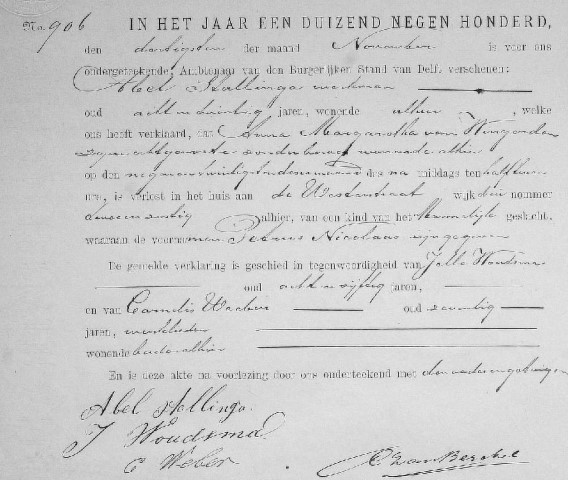 No 906 IN HET JAAR EEN DUIZEND NEGEN HONDERD,
den dertigsten der maand November is voor ons
ondergeteekende, Ambtenaar van den Burgerlijken Stand van Delft, verschenen:
Abel Stallinga werkman
oud acht en dertig jaren, wonende alhier, welke
ons heeft verklaard, dat Anna Margaretha van Wingerden
zijne echtgenoote zonder beroep wonende alhier
op den negen en twintigsten dezer maand des na middags ten half
ure, is verlost in het huis aan de Weststraat wijk nummer
alhier, van een kind van het Mannelijke geslacht,
waaraan de voornamen Petrus Nicolaas zijn gegeven
De gemelde verklaring is geschied in tegenwoordigheid van Jelle Woudsma
oud acht en vijftig jaren,
en van Cornelis Weber oud zeventig
jaren, werklieden
wonende beide alhier
En is deze akte na voorlezing door ons onderteekend met den vader en getuigen
Abel Stallinga.
J Woudsma
C Weber van Berckel